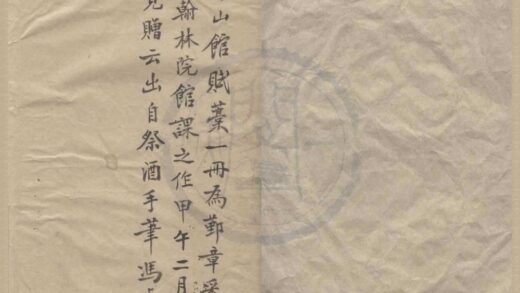 山館賦藁一冊為鄞章
翰林院館課之作甲午二月
見贈云出自祭酒手筆馮